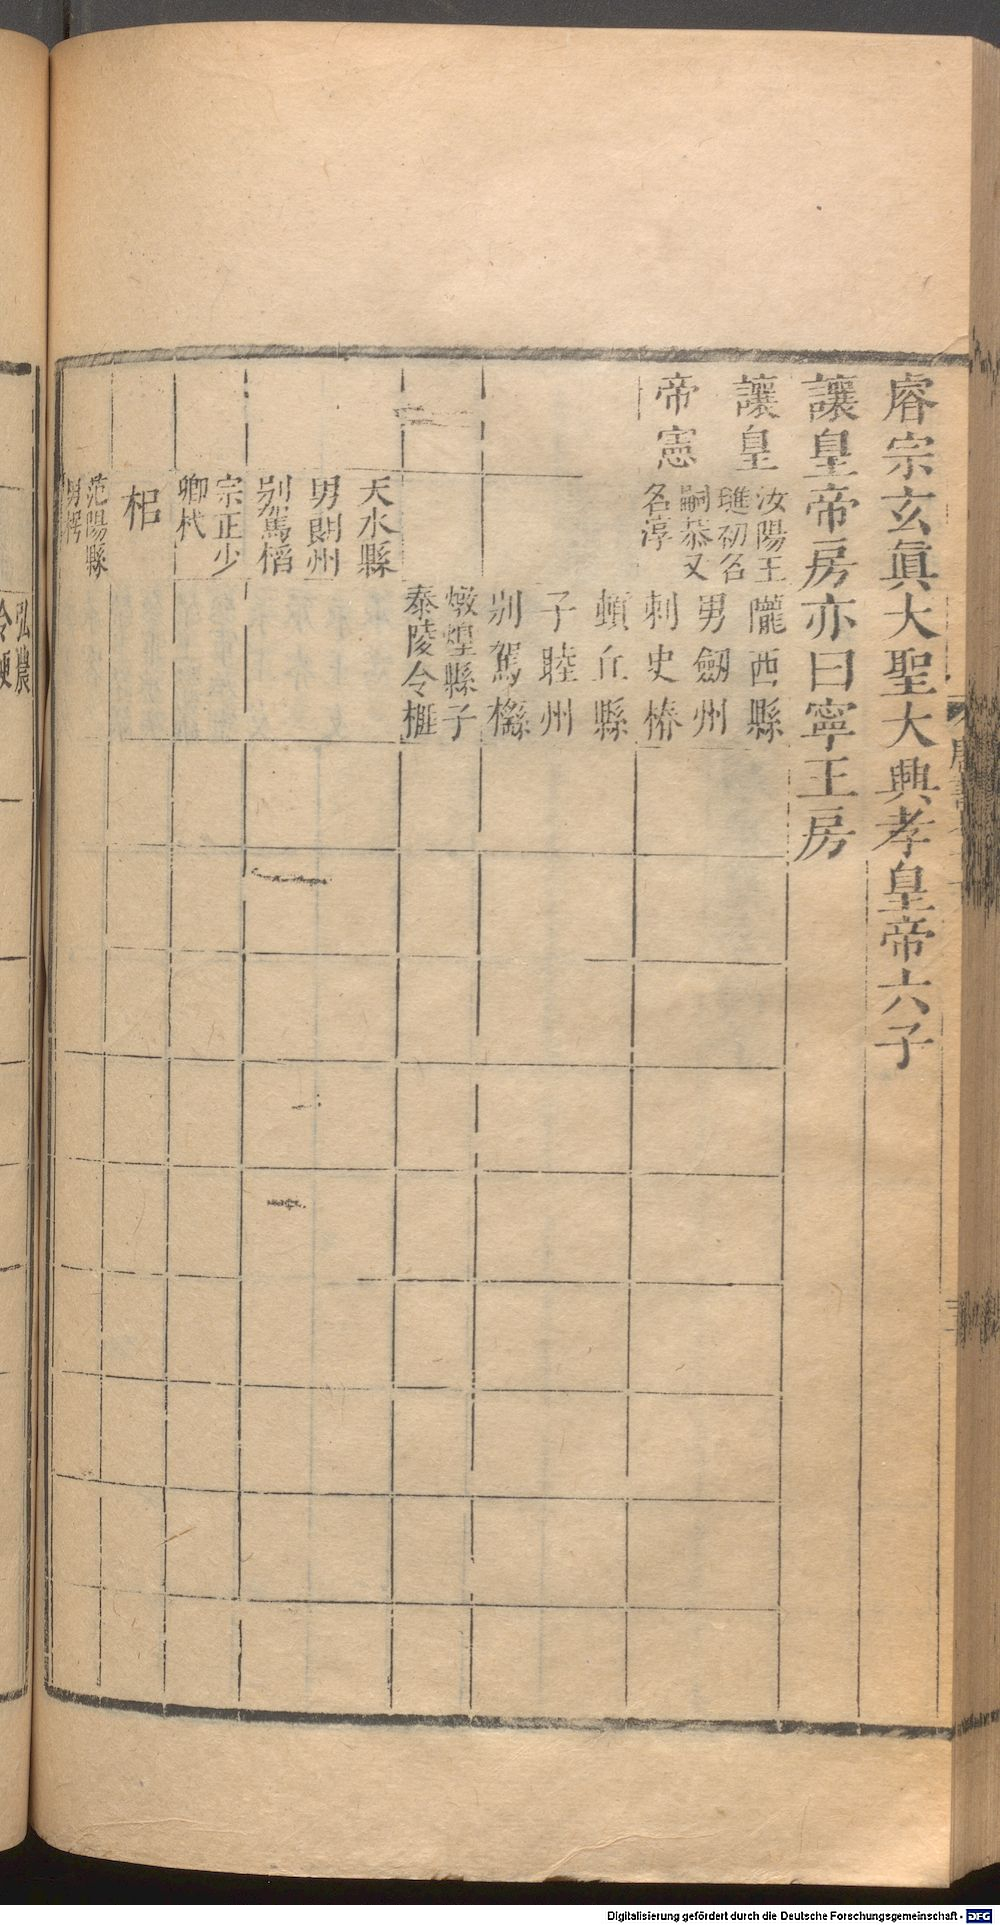 睿宗玄眞大聖大興孝皇帝六子
讓皇帝房亦曰寧王房
讓皇
帝憲
汝陽王
璡初名
嗣恭又
名淳
隴西縣
男劒州
刺史椿
頓丘縣
子睦州
別駕檖
燉煌縣子
泰陵令榧
天水縣
男朗州
別駕槄
宗正少
卿栻
梠
范陽縣
男楞
弘農
Digitalisierung gefördert durch die Deutsche Forschungsgemeinschaft - DFG